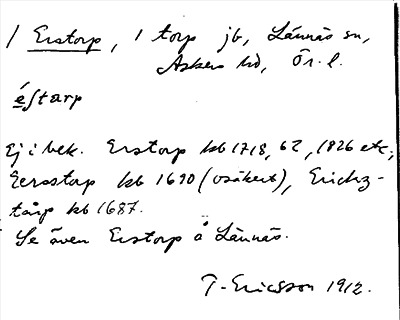 / Erstorp, 1 torp jb, Lännäs sn,
Askers hd, Ör. l.
éstarp
Ej i bek. Erstorp kb 1718, 62, 1826 etc;
Eersstorp kb 1690 (osäkert), Erichz-
tårp kb 1687.
Se även Erstorp å Lännäs.
T. Ericsson 1912.